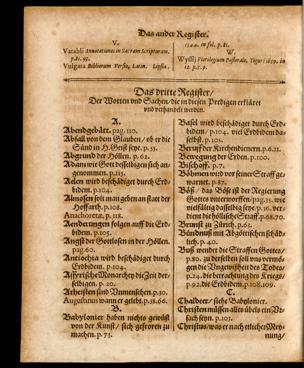 Das ander Register.
V.
Vatabli Annotationes in Sacram Scripturam.
p.81. 95.
Vulgata Bibliorum Versio, Latin. Lipsiæ,
1544. in fol. p. 81.
W.
Wyssij Florilegium Pastorale, Tiguri 1659. in
12. p. 5. 9.
Das dritte Register/
Der Worten und Sachen/ die in diesen Predigen erkläret
und verhandelt werden.
A.
Abendgebätt. pag. 110.
Abfall von dem Glauben/ ob er die
Sünd in H. Geist seye. p. 51.
Abgrund der Höllen. p. 62.
Adam wie Gott desselbigen sich an-
genommen. p. 115.
Aelen wird beschädiget durch Erd-
bidem. p. 104.
Almosen soll man geben an statt der
Hoffart. p. 108.
Anachoreta. p. 118.
Aenderungen folgen auff die Erd-
bidem. p. 105.
Angst der Gottlosen in der Höllen.
pag. 60.
Antiochia wird beschädiget durch
Erdbidem. p. 104.
Assyrische Monarchey die Zeit der-
selbigen. p. 20.
Atheisten sind Unmenschen. p. 10.
Augustinus wann er gelebt. p. 58. 66.
B.
Babylonier haben nichts gewüßt
von der Kunst/ sich gefroren zu
machen. p. 75.
Basel wird beschädiget durch Erd-
bidem/ p. 104. viel Erdbidem da-
selbst. p. 101.
Beruf der Kirchendieneren. p. 6. 11.
Bewegung der Erden. p. 100.
Bischoff. p. 7.
Bähmen wird vor seiner Straff ge-
warnet. p. 87.
Böß/ das Böse ist der Regierung
Gottes unterworffen/ pag. 15. wie
vielfältig dasselbig seye. p. 15. ver-
dient die höllische Straff. p. 68. 70.
Brunst zu Zürich. p. 65.
Bündnuß mit Abgöttischen schäd-
lich. p. 40.
Buß wendet die Straffen Gottes/
p. 80. zu derselben soll uns vermö-
gen die Ungewißheit des Todes/
p. 24. die betrachtung des Kriegs/
p. 92. die Erdbidem. p. 108. 109.
C.
Chaldeer/ siehe Babylonier.
Christen müssen alles übels ein Ur-
sach seyn. p. 103.
Christus/ was er nach etlicher Mey-
nung/